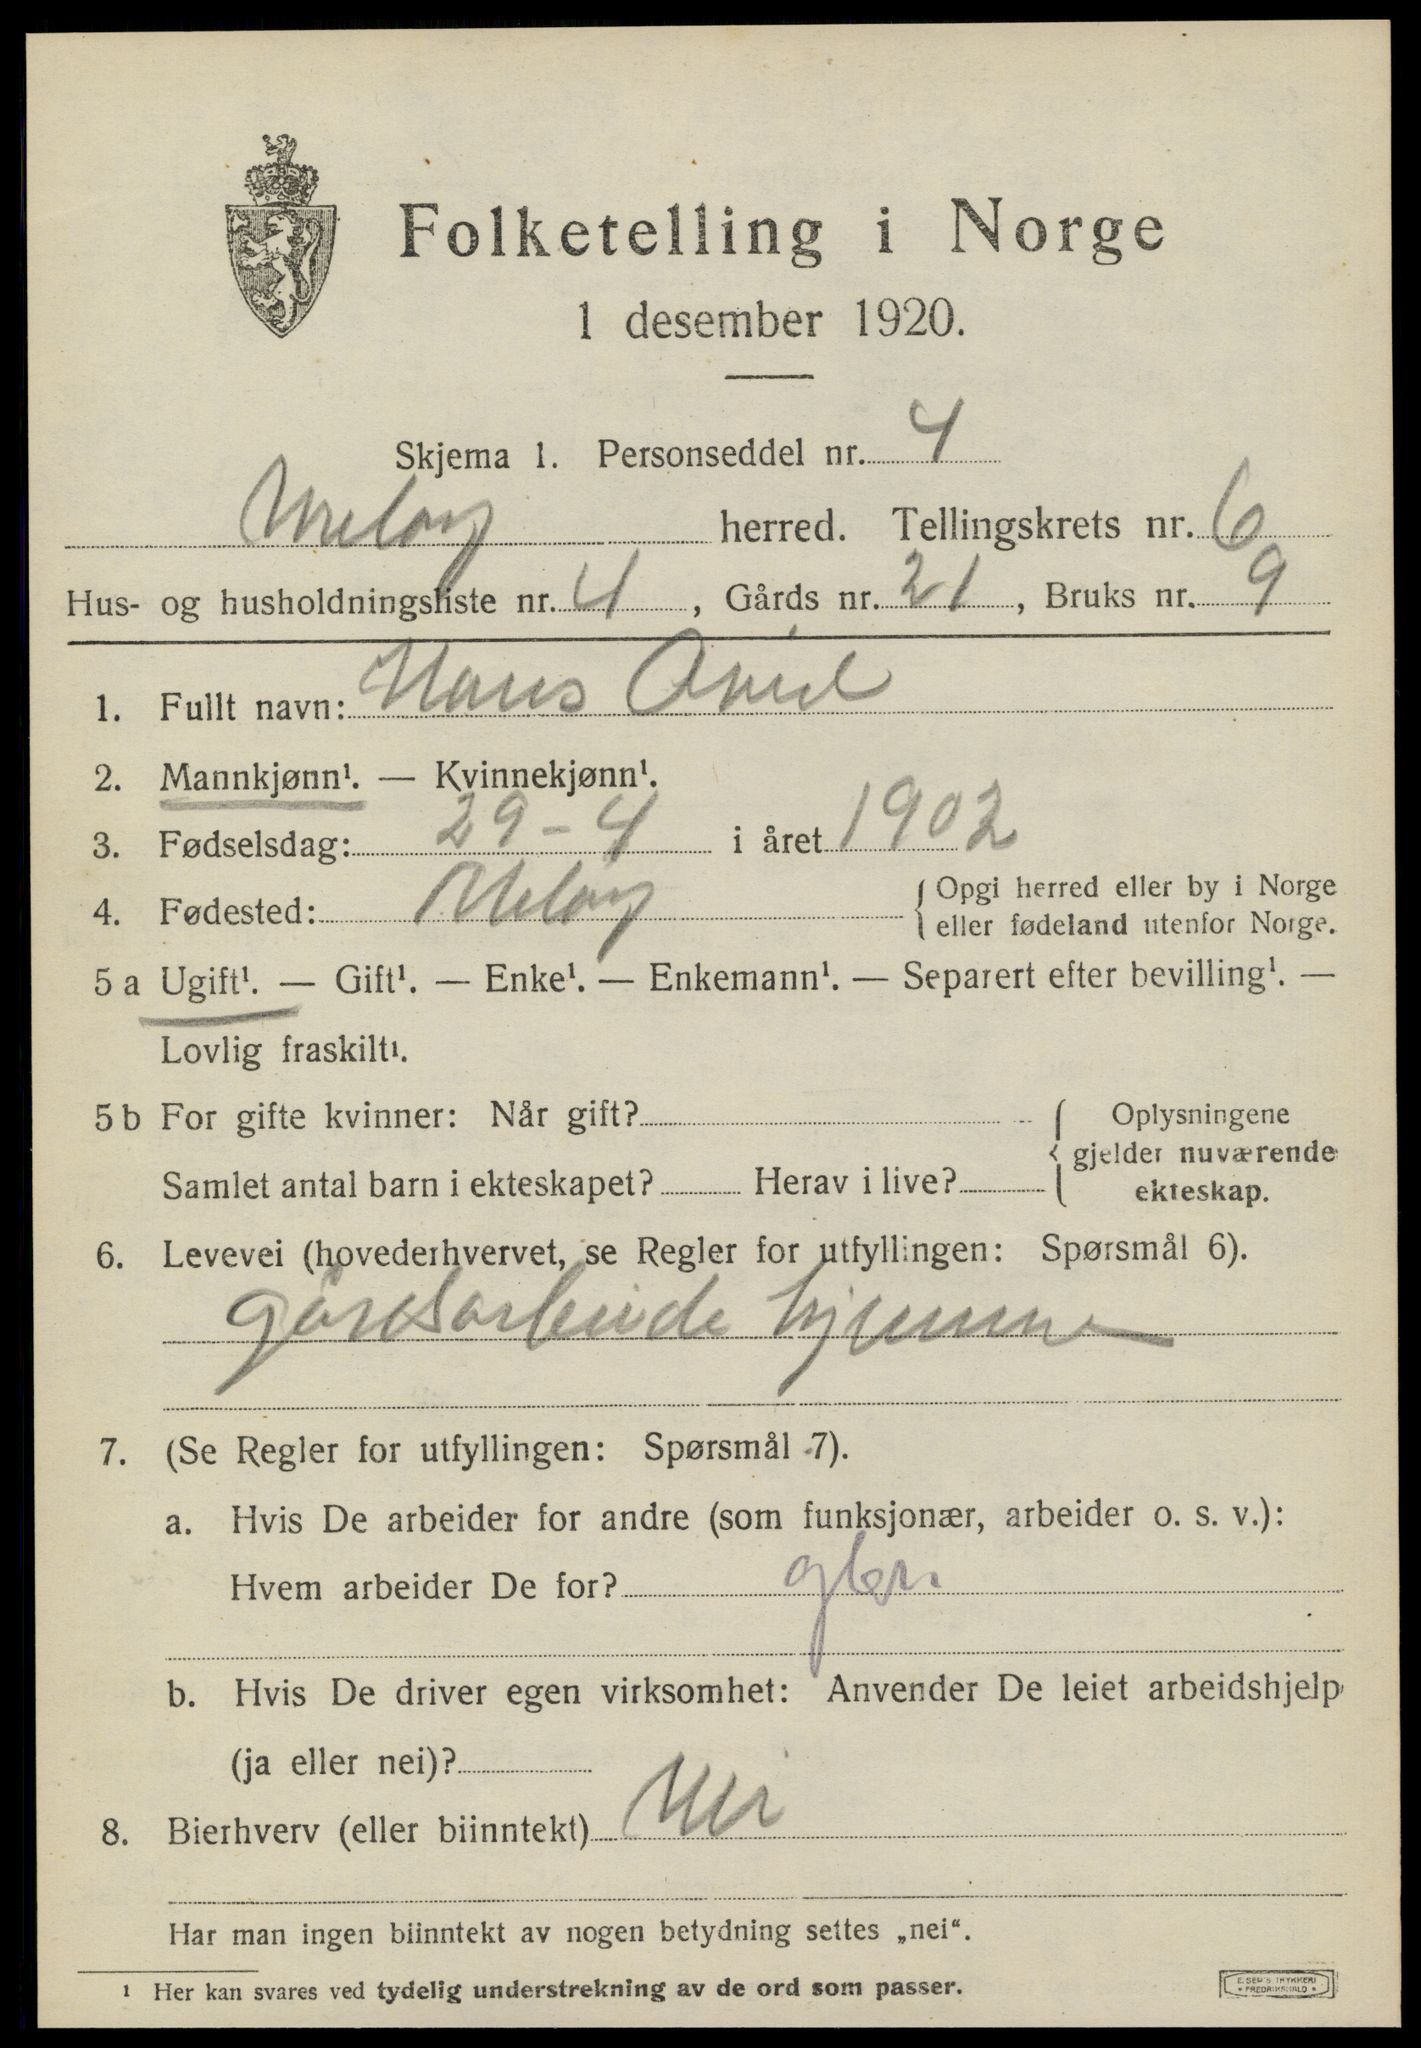 Folketelling i Norge
1 desember 1920.
Skjema 1. Personseddel nr. 4
Meløy herred. Tellingskrets nr. 6
Hus- og husholdningsliste nr. 4, Gårds nr. 21, Bruks nr. 9
1. Fullt navn: Hans
2. Mannkjønn¹. — Kvinnekjønn¹.
3. Fødselsdag: 29-4 i året 1902
4. Fødested: Meløy { Opgi herred eller by i Norge
eller fødeland utenfor Norge.
5 a Ugift¹. — Gift¹. — Enke¹. — Enkemann¹. — Separert efter bevilling¹. —
Lovlig fraskilt¹.
5 b For gifte kvinner: Når gift? { Oplysningene
gjelder nuværende
Samlet antal barn i ekteskapet? Herav i live? ekteskap.
6. Levevei (hovederhvervet, se Regler for utfyllingen: Spørsmål 6).
gårdsarbeide hjemme
7. (Se Regler for utfyllingen: Spørsmål 7).
a. Hvis De arbeider for andre (som funksjonær, arbeider o. s. v.):
Hvem arbeider De for?
b. Hvis De driver egen virksomhet: Anvender De leiet arbeidshjelp
(ja eller nei)?
8. Bierhverv (eller biinntekt) Nei
Har man ingen biinntekt av nogen betydning settes „nei“.
¹ Her kan svares ved tydelig understrekning av de ord som passer.
E. SEM'S TRYKKERI
* FREDRIKSHALD *